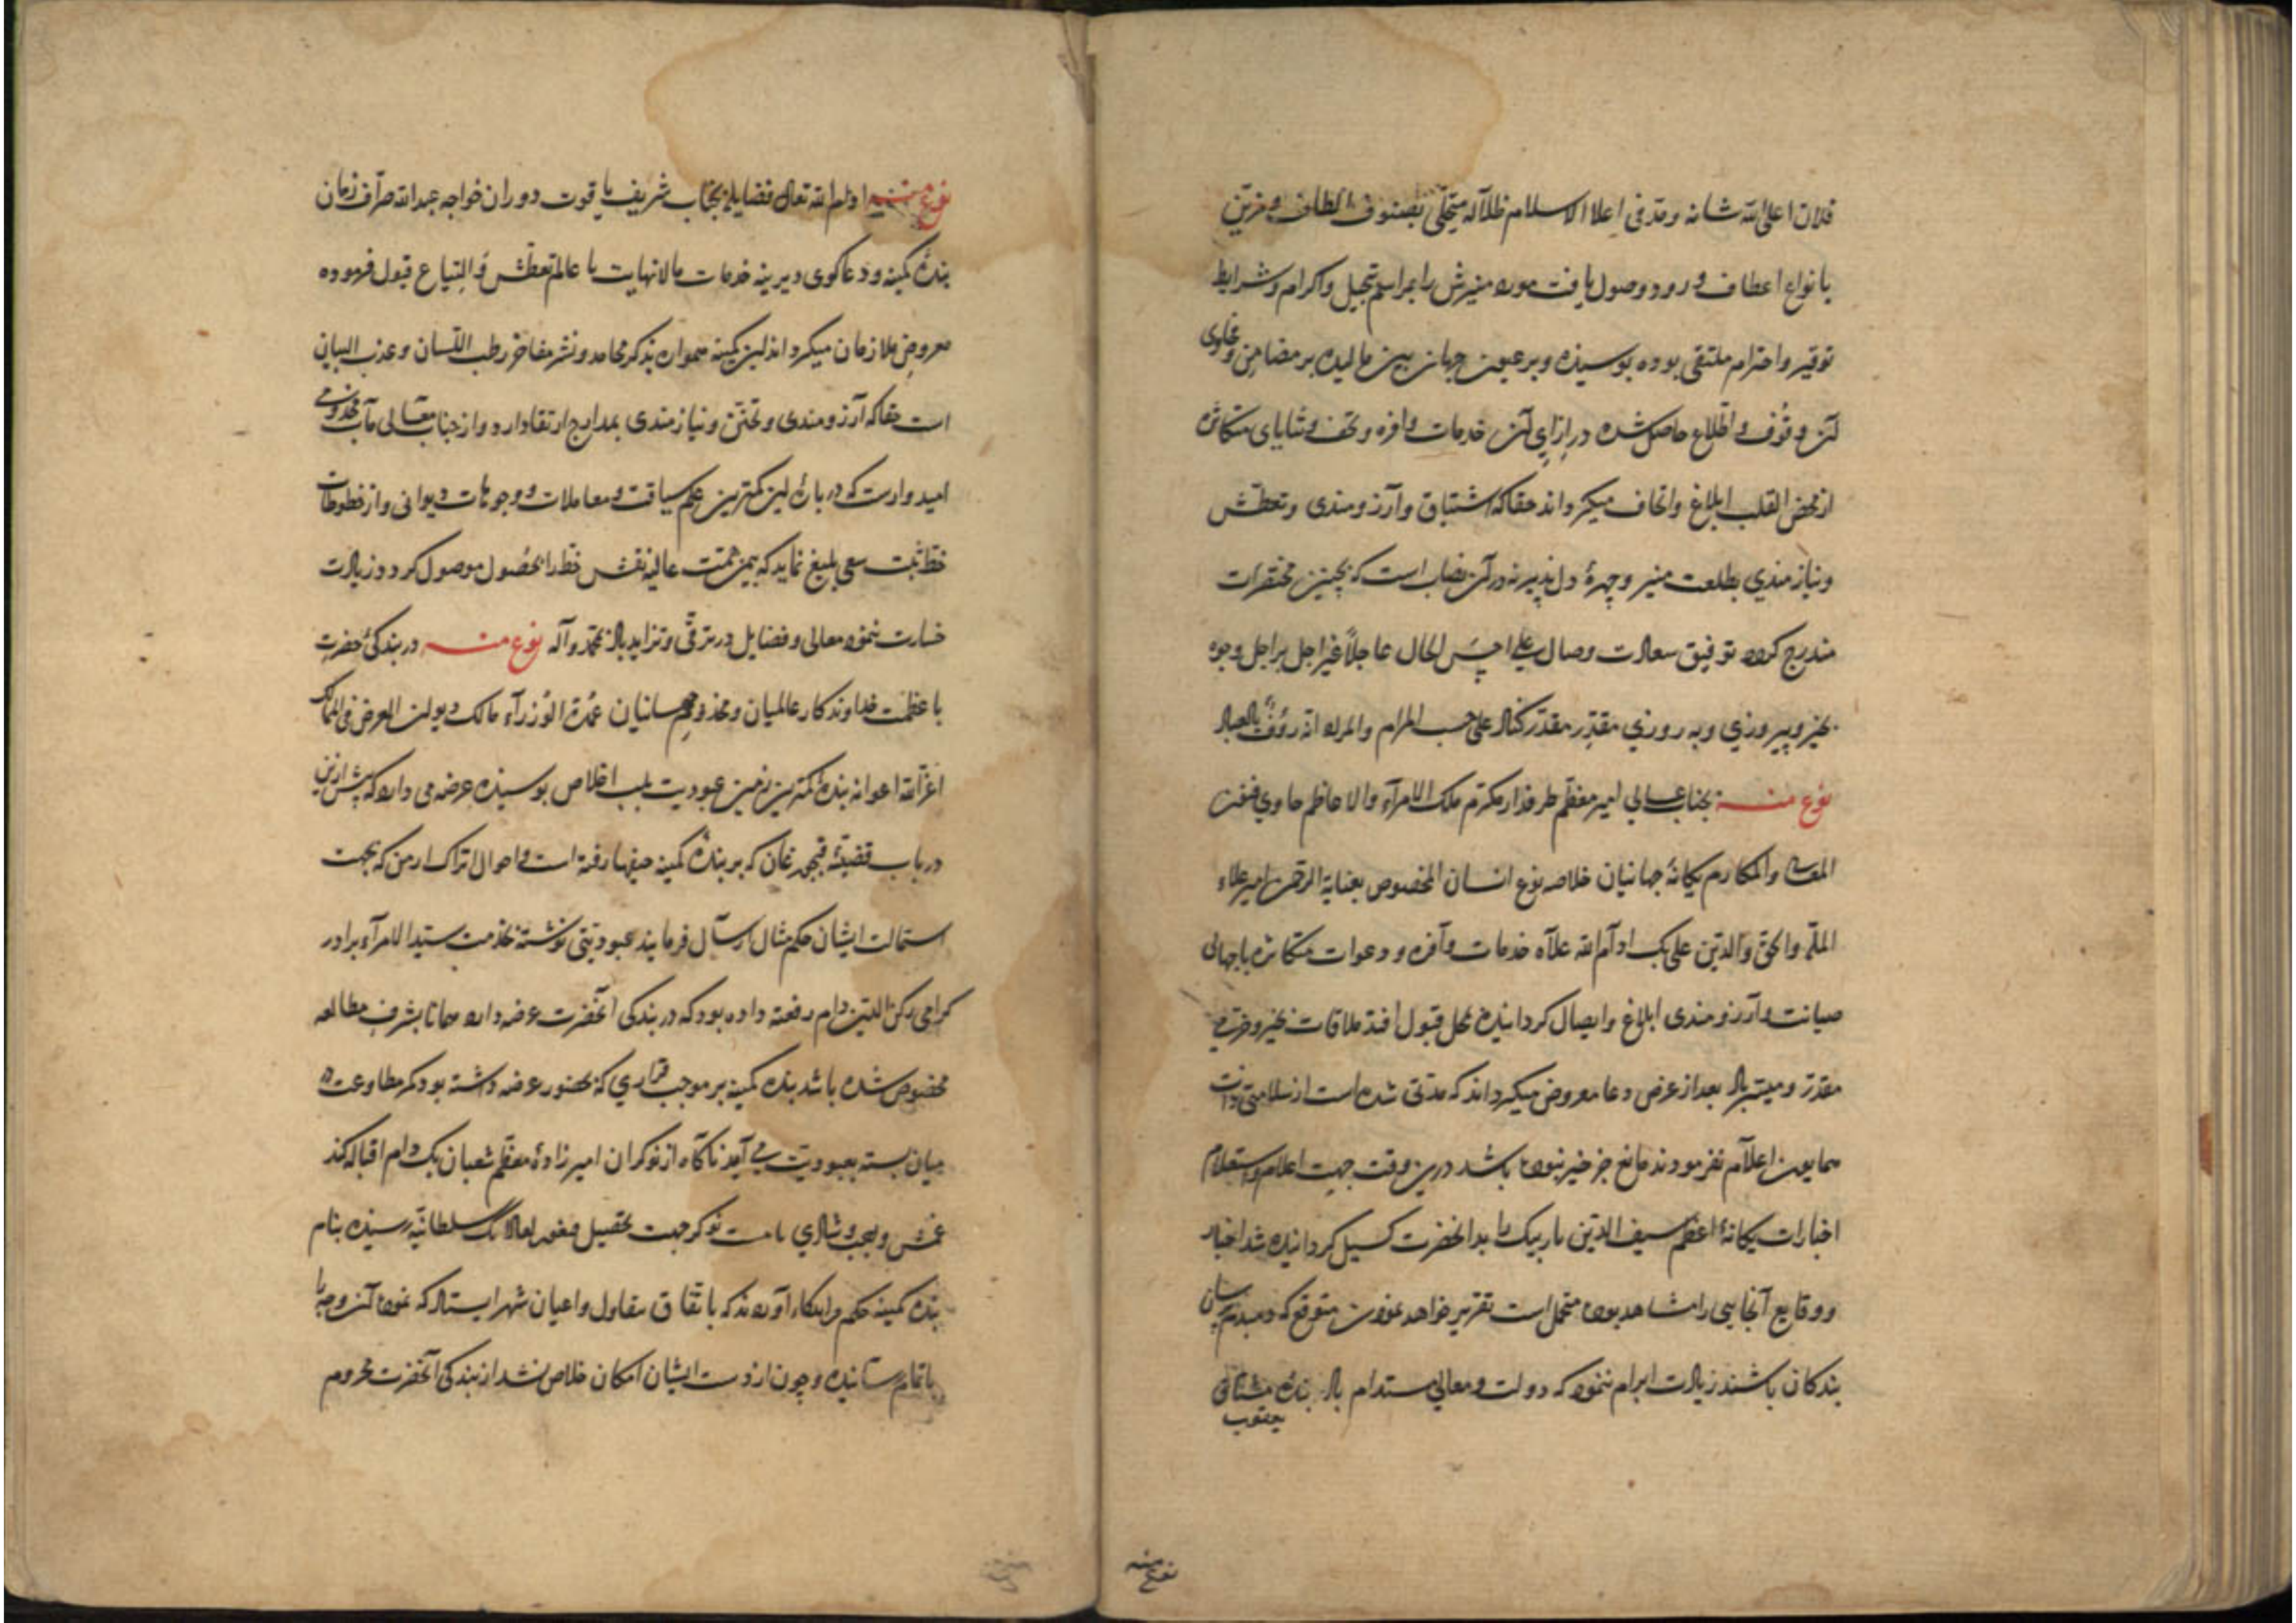 فلان اعلی الله شانه و مد فی اعلا الاسلام ظلاله متحلی بصنوف الطاف و مزین
بانواع اعطاف ورود و وصول یافت مورد منیرش را بمراسم تبجیل و اکرام و شرایط
توقیر و احترام ملتقی بوده بوسیده و بر عیون جهان بین مالیده بر مضامین و فحاوی
آن وقوف و اطلاع حاصل شده در ازای آن خدمات وافره و تحف و ثنایای متکاثره
از محض القلب ابلاغ و اتحاف میگرداند حقا که اشتیاق و آرزومندی و تعطش
و نیازمندی بطلعت منیر و چهرهٔ دل پذیر نه در آن نصاب است که بچنین مختصرات
مندرج کردد توفیق سعادت وصال علی احسن الحال عاجلاً غیر اجل بر اجل وجوه
بخیر و پیروزی و به روزی مقدر مقدر کناد علی حسب المرام و المراد انه رؤف بالعباد
نوع منه بجناب عالی امیر معظم طرفدار مکرم ملک الامرآء و الاعاظم حاوی فنون
المعالی و المکارم یکانهٔ جهانیان خلاصه نوع انسان المخصوص بعنایة الرحمن امیر علاء
الملة و الحق و الدین علی بک ادام الله علاه خدمات وافره و دعوات متکاثره با جهانی
صیانت و آرزومندی ابلاغ و ایصال کردانیده بمحل قبول افتد ملاقات بخیر و خرمی
مقدر و میسر باد بعد از عرض دعا معروض میگرداند که مدتی شده است از سلامتی ذات
همایون اعلام نفرمودند مانع جز خیر نبوده باشد درین وقت جهت اعلام و استعلام
اخبارات یکانهٔ اعظم سیف الدین باربیک را بدان حضرت کسیل کردانیده شد اخبار
و وقایع آنجایی را مشاهد بوده متحمل است تقریر خواهد نمودن متوقع که
بندکان باشند زیادت ابرام ننمود که دولت و معالی مستدام باد بندهٔ مشتاق
یعقوب
نوع منه
نوع منه ادام الله تعالی فضایله بجناب شریف یاقوت دوران خواجه عبد الله صراف زمان
بندهٔ کمینه و دعاکوی دیرینه خدمات مالانهایت با عالم تعطش و التیاع قبول فرموده
معروض ملازمان میگرداند این کمینه همواره بذکر محامد و نشر مفاخر رطب اللسان و عذب البیان
است حقا که آرزومندی و تحنن و نیازمندی بمدارج ارتقا دارد و از جناب معالی مآب مخدومی
امیدوارست که در بارهٔ این کمترین علم سیاقت و معاملات و وجوهات دیوانی و از خطوطات
خط ثبت سعی بلیغ نماید که بیمن همت عالیه نقش خط را بحصول موصول کردد و زیادت
خسارت ننمود معالی و فضایل در ترقی و تزاید باد بمحمد و آله نوع منه در بندکی حضرت
با عظمت خداوندکار عالمیان و مخدوم جهانیان عمدة الوزرآء مالک دیوان العرض فی الممالک
اعز الله اعوانه بندهٔ کمترین زمین عبودیت بلب اخلاص بوسیده عرضه می دارد که پیش ازین
در باب قضیهٔ که بر بندهٔ کمینه حیفها رفته است و احوال اتراک ارمن که بجهت
استمالت ایشان حکم مثال ارسال فرمایند عبودیتی نوشته بخدمت سید الامرآء برادر
کرامی رکن الدین دام رفعته داده بود که در بندکی آنحضرت عرضه دارد همانا بشرف مطالعه
مخصوص شده باشد بنده کمینه بر موجب قراری که بحضور عرضه داشته بود کمر مطاوعت در
میان بسته بعبودیت می آمد ناکاه از نوکران امیرزادهٔ معظم شعبان بک دام اقباله
نوکر جهت تحصیل سلطانیه رسیده بنام
بنده کمینه حکم آوردند که باتفاق و اعیان شهر ایستاد که نموده آن وجه را
باتمام ستانیده و چون از دست ایشان امکان خلاص نشد از بندکی آنحضرت محروم